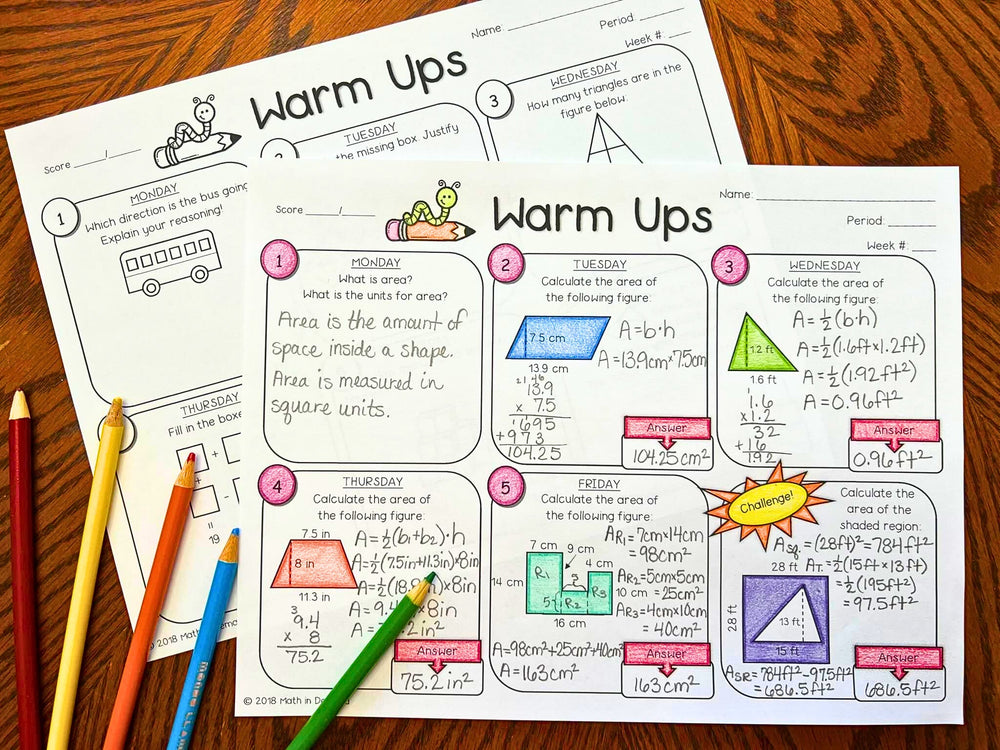 Name:
Period:
Week #:
Warm Ups
Score /
1
MONDAY
Which direction is the bus going
Explain your reasoning!
TUESDAY
the missing box. Justify
3
WEDNESDAY
How many triangles are in the
figure below:
THURSDAY
Fill in the boxe
+
+
-
11
19
© 2018 Math in Dem
Score /
Warm Ups
Name:
Period:
Week #:
1
MONDAY
What is area?
What is the units for area?
Area is the amount of
space inside a shape.
Area is measured in
square units.
2
TUESDAY
Calculate the area of
the following figure:
7.5 cm
13.9 cm
A=b·h
A=13.9cm×7.5cm
13.9
x 7.5
695
+973
104.25
Answer
104.25cm²
3
WEDNESDAY
Calculate the area of
the following figure:
1.2 ft
1.6 ft
A=½(b·h)
A=½(1.6ft×1.2ft)
A=½(1.92ft²)
A=0.96ft²
1.6
x1.2
32
+16
1.92
Answer
0.96ft²
4
THURSDAY
Calculate the area of
the following figure:
7.5 in
8 in
11.3 in
A=½(b₁+b₂)·h
A=½(7.5in+11.3in)×8in
A=½(18.8in)×8in
A=9.4 ×8in
A= 2in²
3
9.4
x 8
75.2
Answer
75.2in²
5
FRIDAY
Calculate the area of
the following figure:
7 cm
9 cm
4 cm
14 cm
10 cm
16 cm
R₁
R₂
R₃
5
5
AR₁=7cm×14cm
=98cm²
AR₂=5cm×5cm
=25cm²
AR₃=4cm×10cm
=40cm²
A=98cm²+25cm²+40cm²
A=163cm²
Answer
163cm²
Challenge!
Calculate the
area of the
shaded region:
28 ft
28 ft
13 ft
15 ft
Asq.=(28ft)²=784ft²
AT=½(15ft×13ft)
=½(195ft²)
=97.5ft²
ASR=784ft²-97.5ft²
=686.5ft²
Answer
686.5ft²
© 2018 Math in De